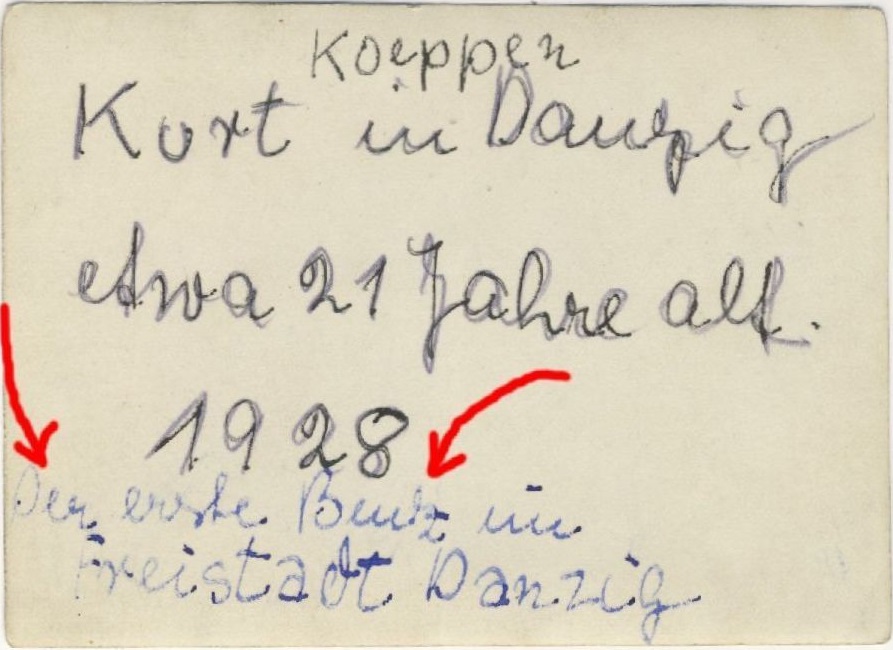 Koeppen
Kurt in Danzig
etwa 21 Jahre alt.
1928
Der erste Benz im
Freistadt Danzig